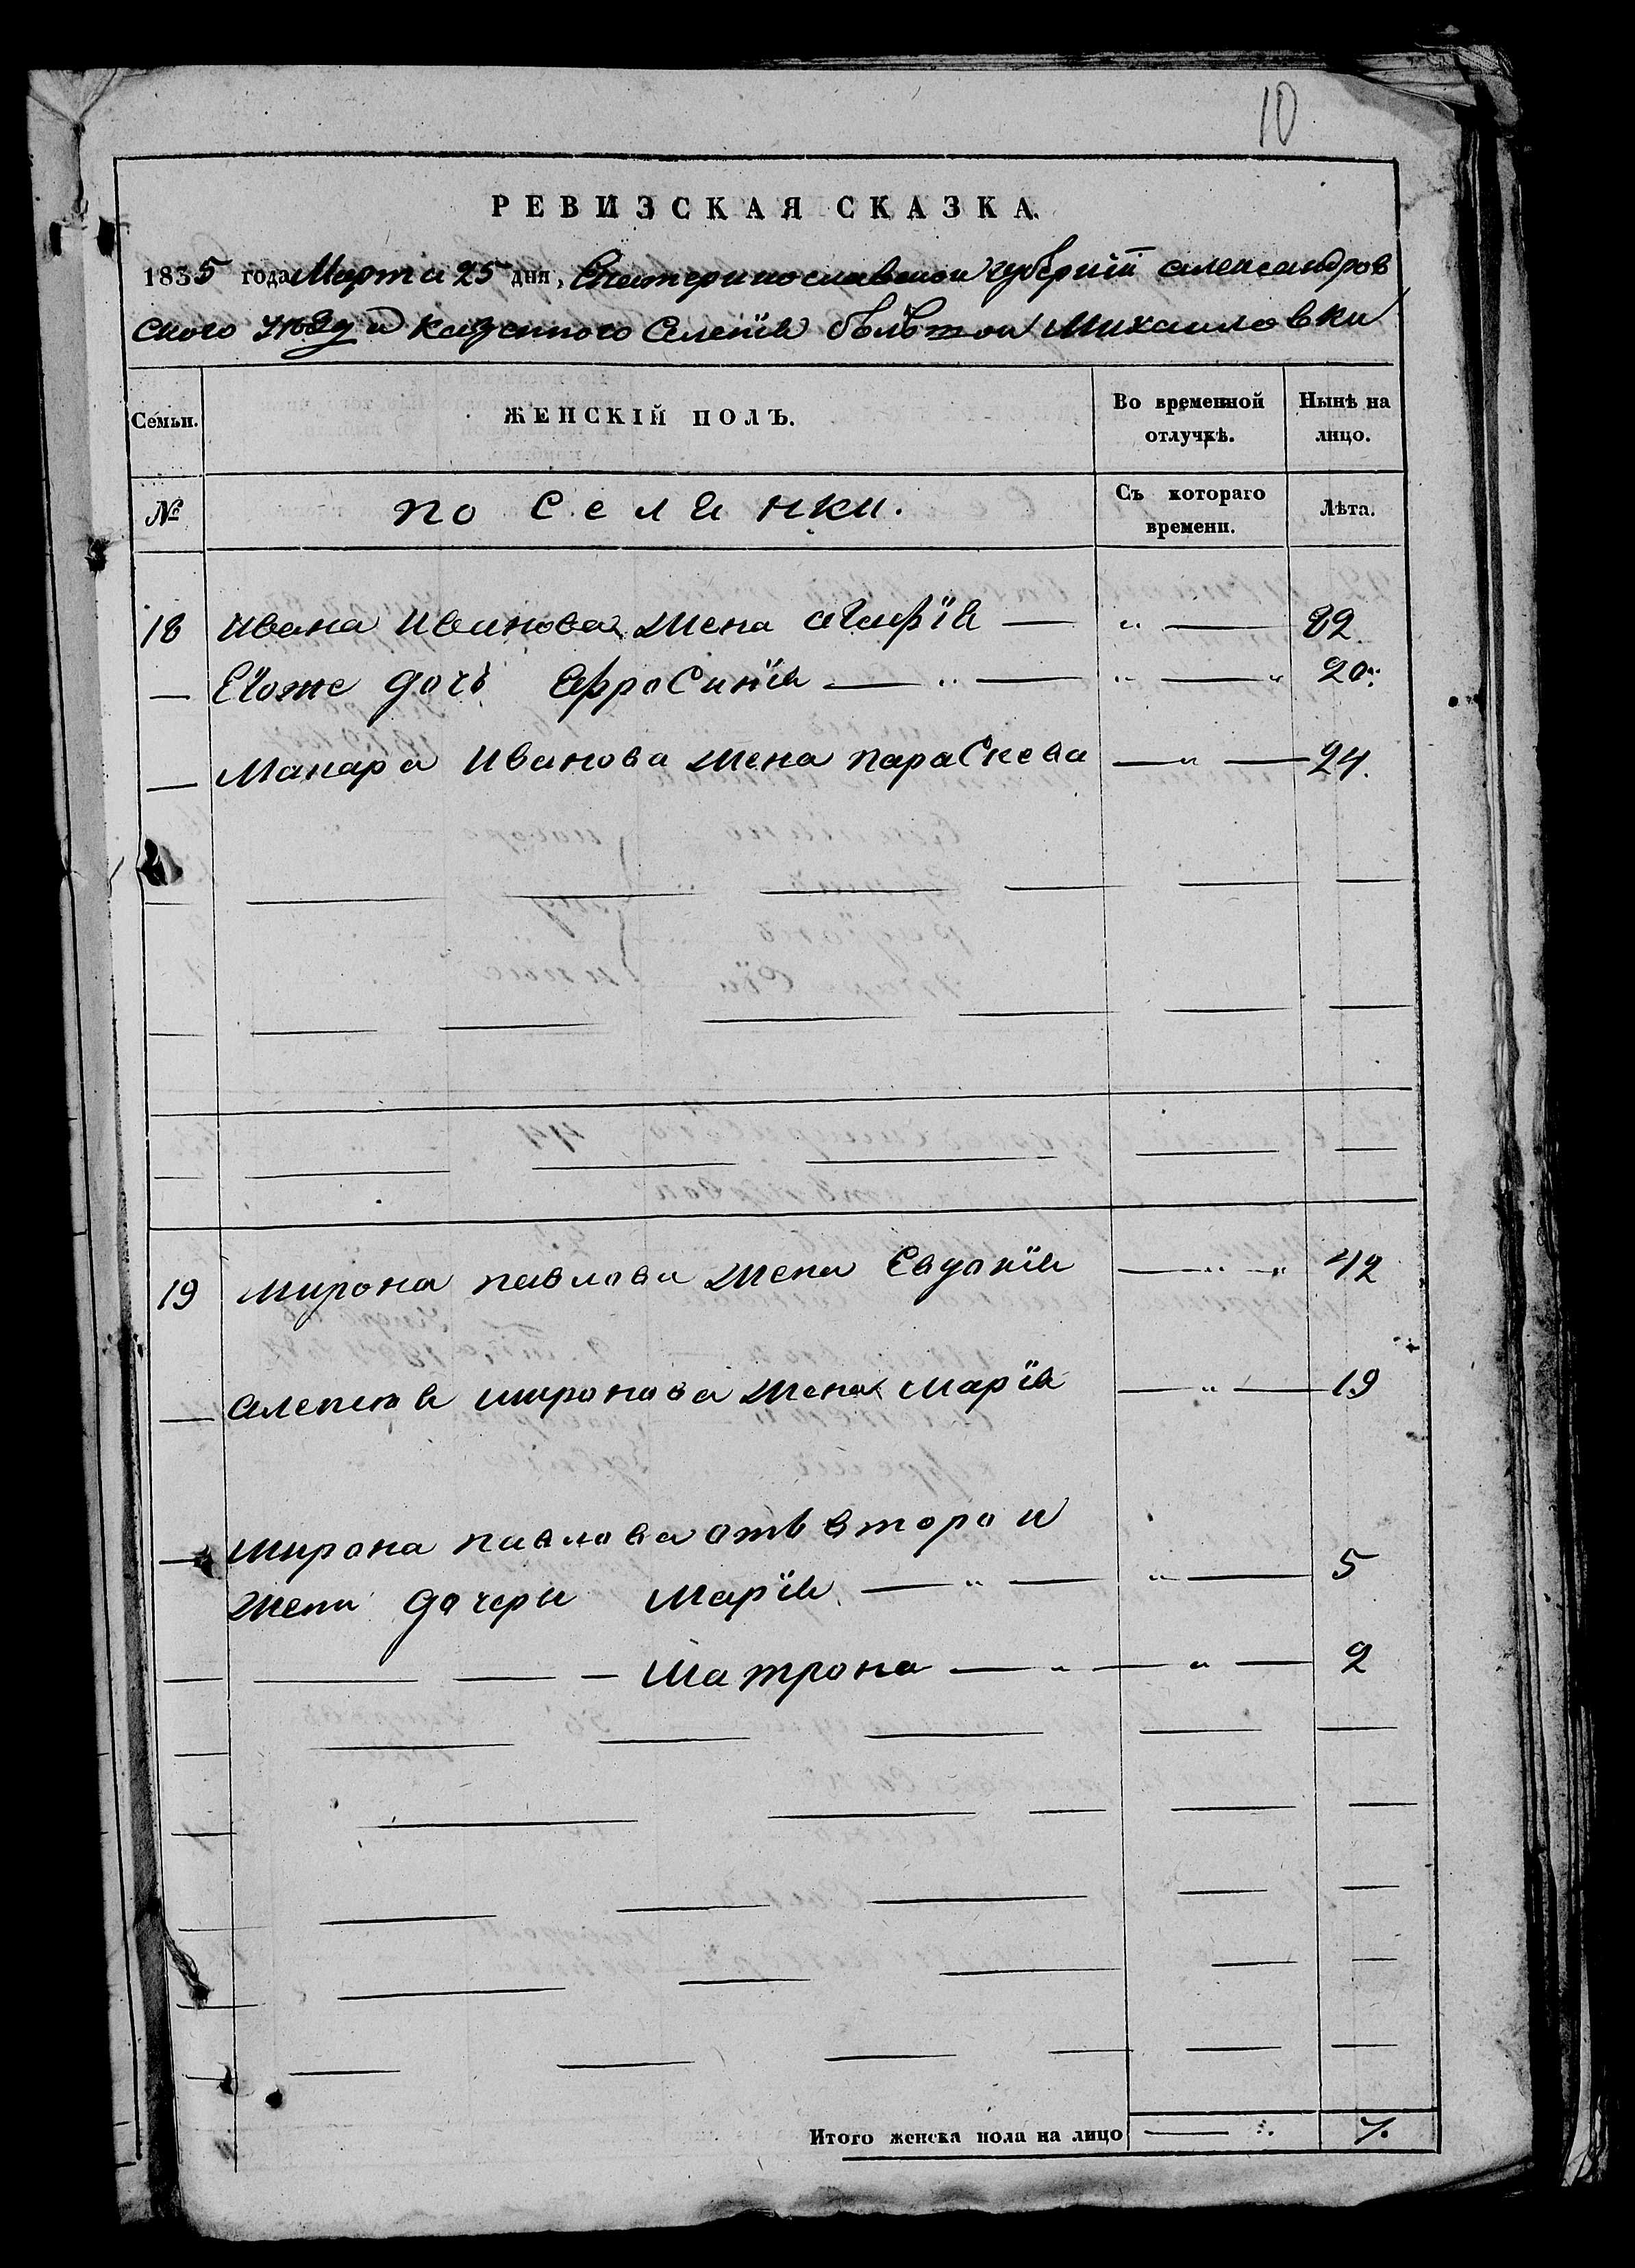 10
РЕВИЗСКАЯ СКАЗКА.
1835 года Марта 25 дня, Екатеринославской губернїи александров
ского уезда казенного Селенїя Михаиловки
Семьи. ЖЕНСКІЙ ПОЛЪ. Во временной отлучкѣ. Нынѣ на лицо.
№ поселянки. Съ котораго времени. Лѣта.
18 Ивана Иванова жена агафїя — „ —
— Егоже дочь Ефросинїя — „ — „ — „ 20
— Макара Иванова жена параскева — „ — 24.
19 мирона павлова жена Евдокїя — „ — „ 42
— алексея миронова жена марїя — „ — 19
— мирона павлова отъ второи
жени дочери марїя — „ — „ — 5
— — — — матрона — „ — „ — 2
Итого женска пола на лицо — 7.